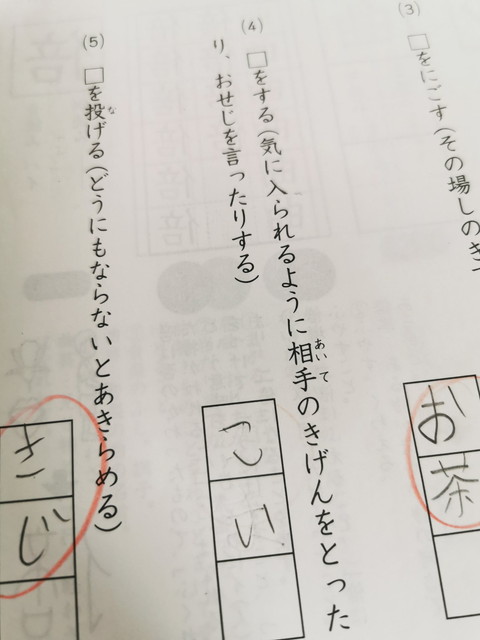 (3) □をにごす(その場しの
お茶
(4) □をする(気に入られるように相手のきげんをとった
あいて
り、おせじを言ったりする)
こい
(5) □を投げる(どうにもならないとあきらめる)
な
さじ